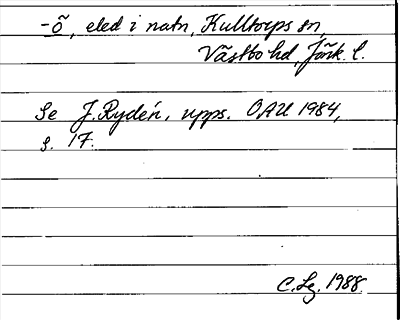 -ö, eled i natn, Kulltorps sn,
Västbo hd, Jönk. l.
Se J. Rydén, upps. OAU 1984,
s. 17.
C. Lg. 1988